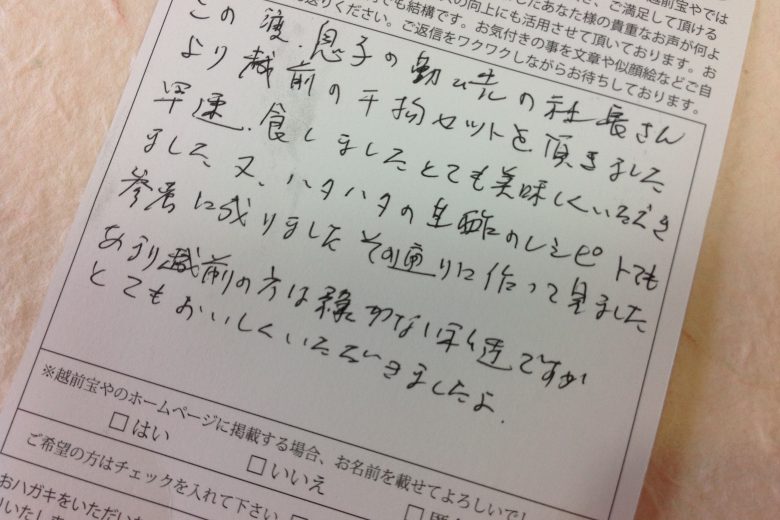 越前宝やでは
、ご満足して頂ける
したあなた様の貴重なお声が何よ
の向上にも活用させて頂いております。お
でも結構です。お気付きの事を文章や似顔絵などご自
お送りください。ご返信をワクワクしながらお待ちしております。
この度、息子の勤め先の社長さん
より越前の干物セットを頂きました
早速、食しましたとても美味しくいただき
ました 又、ハタハタの生酢のレシピトても
参考に成りました その通りに作って見ました
あまり越前の方は縁のない年ですが
とてもおいしくいただきましたよ.
※越前宝やのホームページに掲載する場合、お名前を載せてよろしいでし
□はい □いいえ
ご希望の方はチェックを入れて下さい
おハガキをいただいた
いたしま